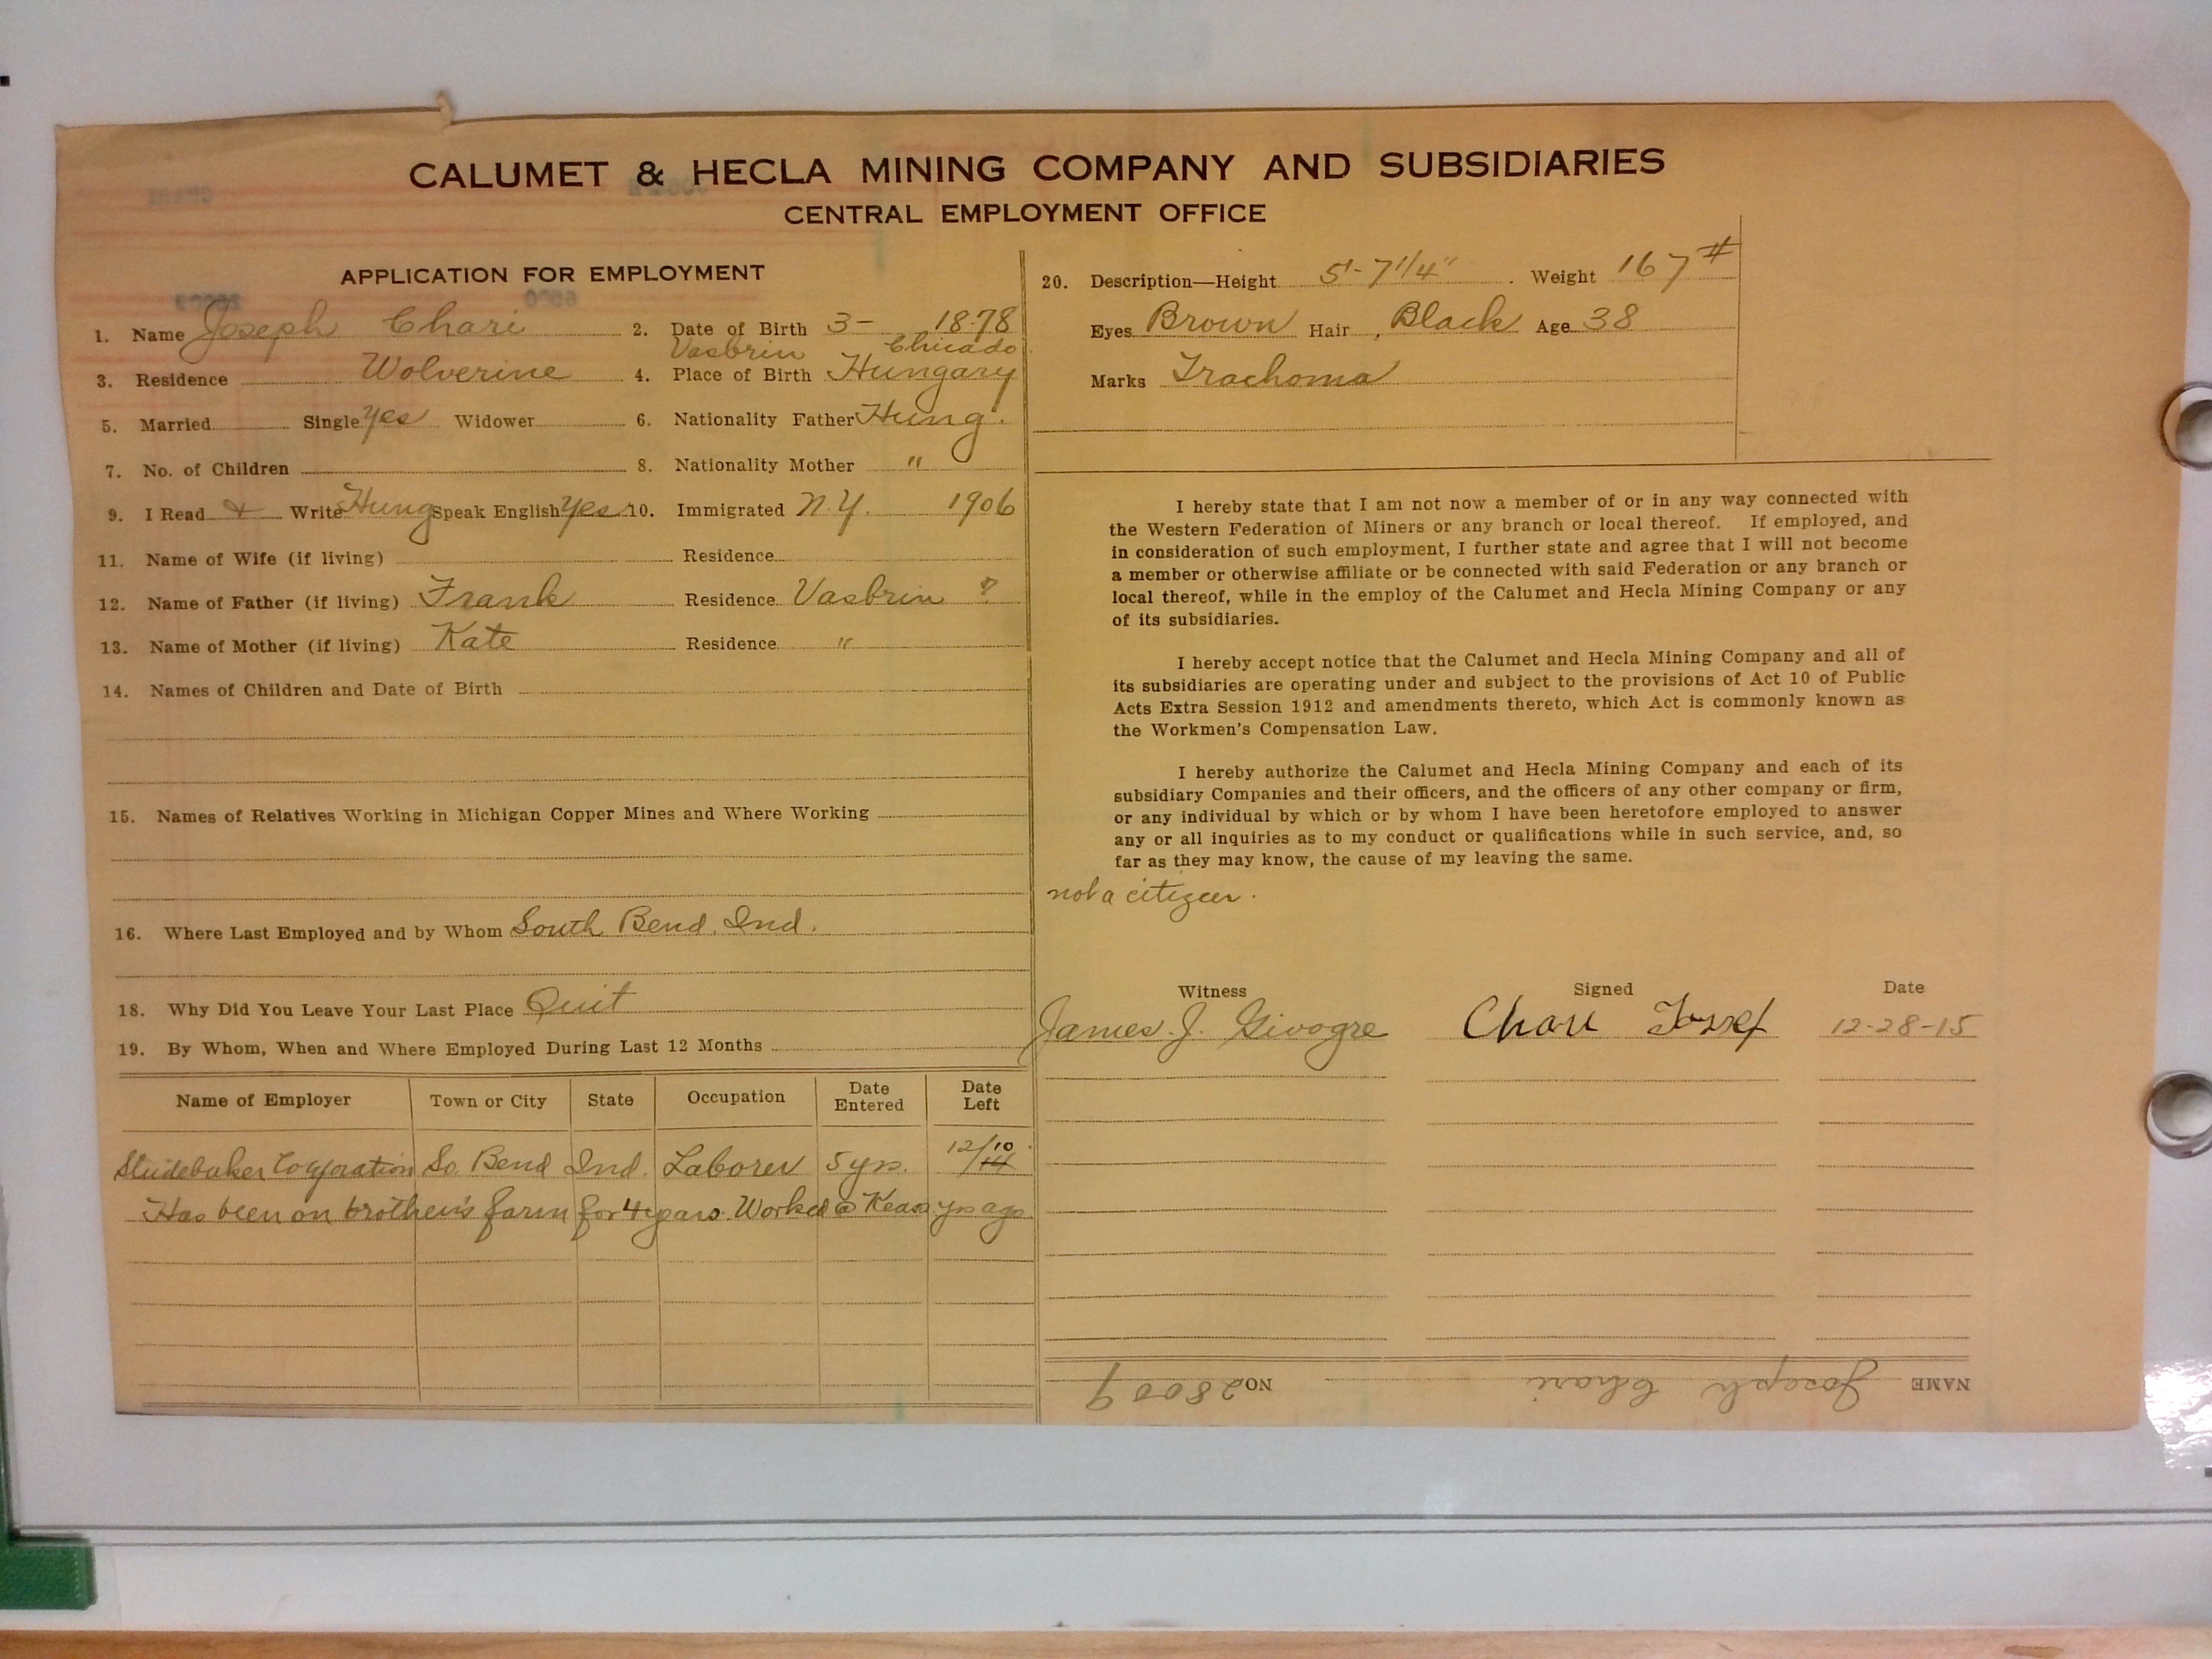 CALUMET & HECLA MINING COMPANY AND SUBSIDIARIES
CENTRAL EMPLOYMENT OFFICE
APPLICATION FOR EMPLOYMENT
1. Name Joseph Chari 2. Date of Birth 3- 1878
Vasbrin Chicado
3. Residence Wolverine 4. Place of Birth Hungary
5. Married Single Yes Widower 6. Nationality Father Hung.
7. No. of Children 8. Nationality Mother "
9. I Read & Write Hung Speak English Yes 10. Immigrated N.Y. 1906
11. Name of Wife (if living) Residence
12. Name of Father (if living) Frank Residence Vasbrin ?
13. Name of Mother (if living) Kate Residence "
14. Names of Children and Date of Birth
15. Names of Relatives Working in Michigan Copper Mines and Where Working
16. Where Last Employed and by Whom South Bend, Ind.
18. Why Did You Leave Your Last Place Quit
19. By Whom, When and Where Employed During Last 12 Months
Name of Employer Town or City State Occupation Date Entered Date Left
Studebaker Corporation So. Bend Ind. Laborer 5 yrs. 12/10
Has been on brother's farm for 4 years. Worked @ Kears yrs ago
20. Description—Height 5'-7 1/4" Weight 167#
Eyes Brown Hair Black Age 38
Marks Trachoma
I hereby state that I am not now a member of or in any way connected with
the Western Federation of Miners or any branch or local thereof. If employed, and
in consideration of such employment, I further state and agree that I will not become
a member or otherwise affiliate or be connected with said Federation or any branch or
local thereof, while in the employ of the Calumet and Hecla Mining Company or any
of its subsidiaries.
I hereby accept notice that the Calumet and Hecla Mining Company and all of
its subsidiaries are operating under and subject to the provisions of Act 10 of Public
Acts Extra Session 1912 and amendments thereto, which Act is commonly known as
the Workmen's Compensation Law.
I hereby authorize the Calumet and Hecla Mining Company and each of its
subsidiary Companies and their officers, and the officers of any other company or firm,
or any individual by which or by whom I have been heretofore employed to answer
any or all inquiries as to my conduct or qualifications while in such service, and, so
far as they may know, the cause of my leaving the same.
not a citizen.
Witness Signed Date
James J. Givogre Chari Jozsef 12-28-15
NAME Joseph Chari NO. 28009